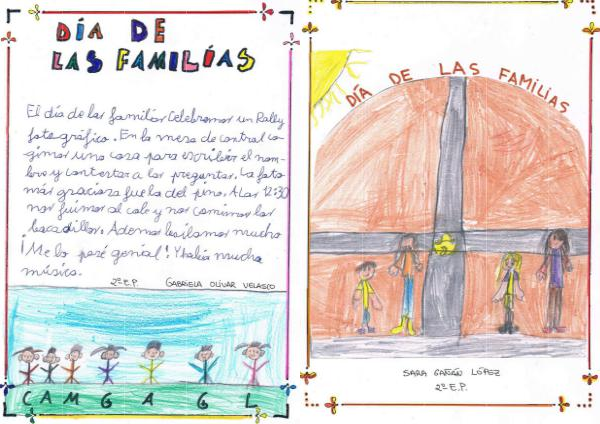 DÍA DE
LAS FAMILIAS
El día de las familias celebramos un Rally
fotográfico. En la mesa de control co-
gimos una cosa para escribir el nom-
bre y contestar a las preguntas. La foto
más graciosa fue la del pino. A las 12:30
nos fuimos al cole y nos comimos los
bocadillos. Ademos bailamos mucho
¡Me lo pasé genial! Y había mucha
música.
2º E.P. GABRIELA OLIVAR VELASCO
C A M G A G L
DÍA DE LAS FAMILIAS
SARA GAÑÁN LÓPEZ
2º E.P.